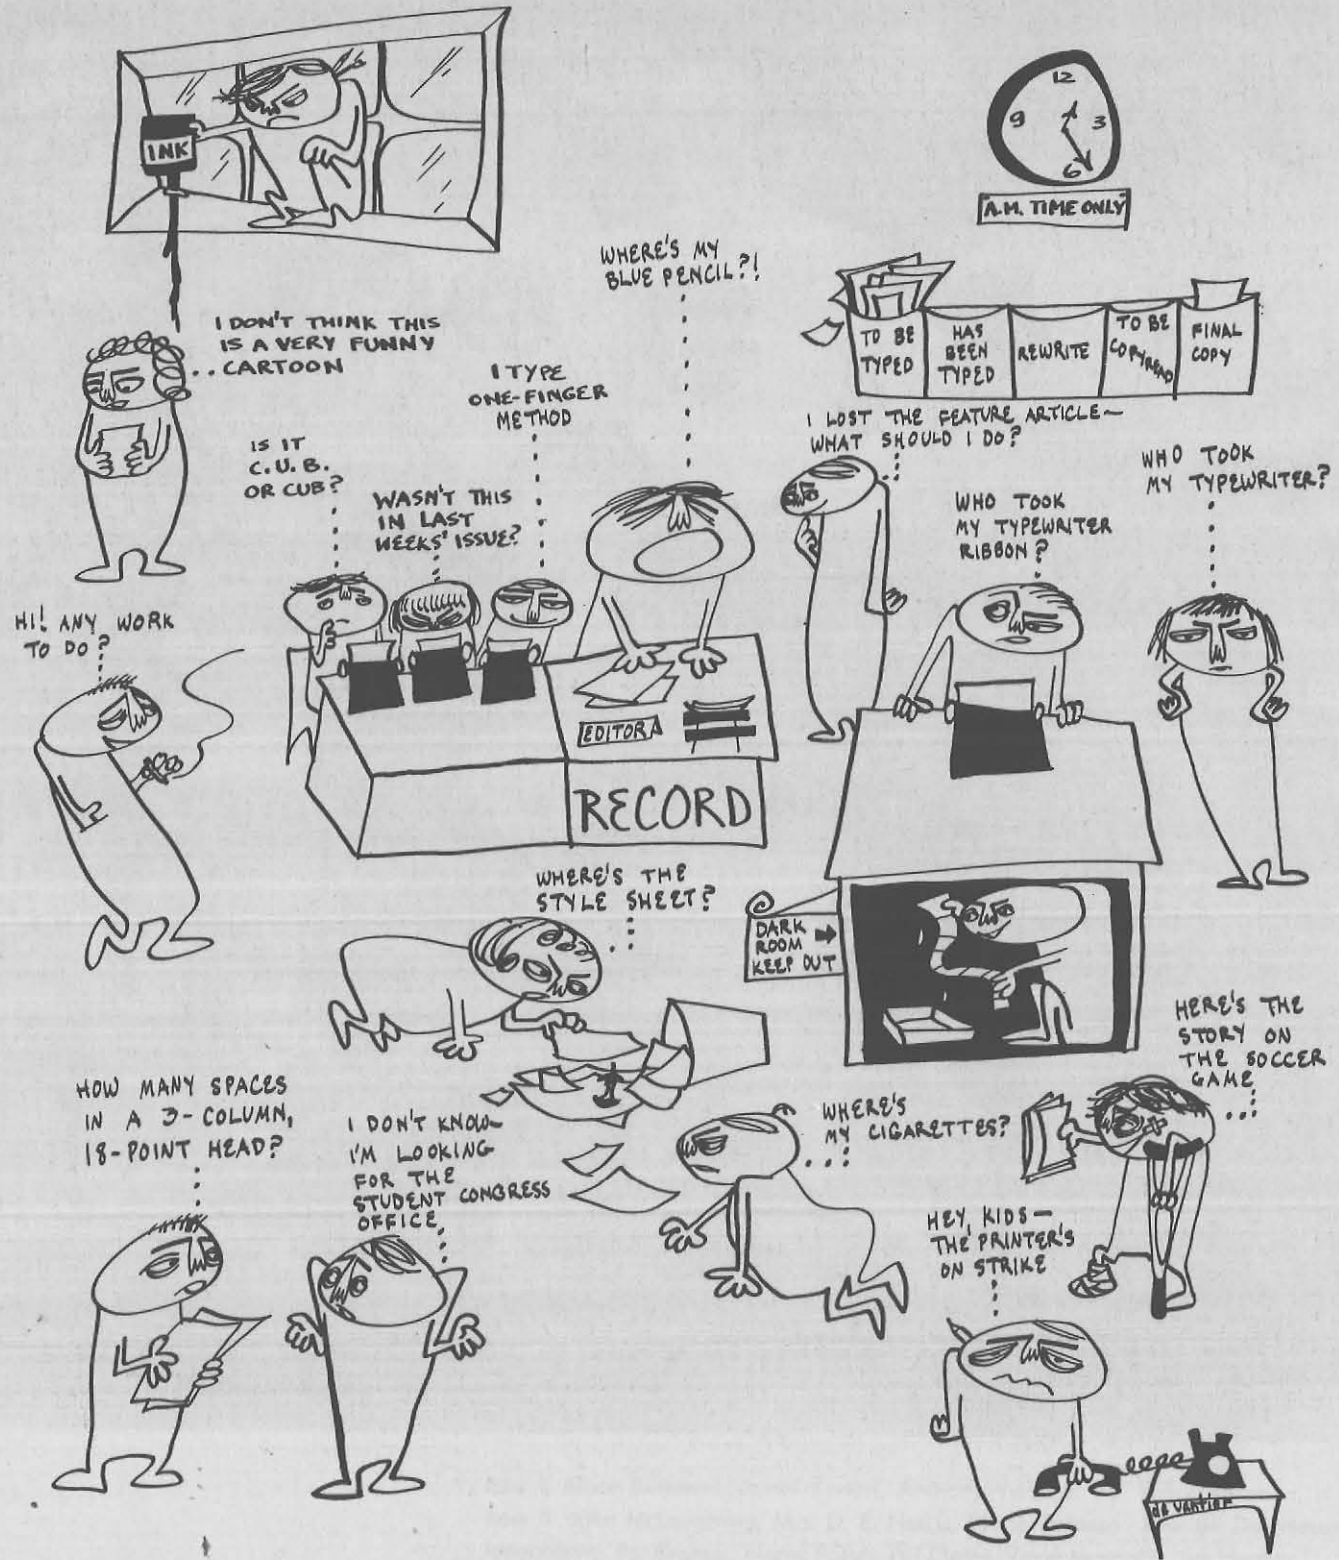 INK
12
9
3
6
A.M. TIME ONLY
WHERE'S MY
BLUE PENCIL?!
I DON'T THINK THIS
IS A VERY FUNNY
CARTOON
TO BE
TYPED
HAS
BEEN
TYPED
REWRITE
TO BE
COPYREAD
FINAL
COPY
I TYPE
ONE-FINGER
METHOD
IS IT
C.U.B.
OR CUB?
WASN'T THIS
IN LAST
WEEKS' ISSUE?
I LOST THE FEATURE ARTICLE—
WHAT SHOULD I DO?
WHO TOOK
MY TYPEWRITER
RIBBON?
WHO TOOK
MY TYPEWRITER?
HI! ANY WORK
TO DO?
EDITORA
RECORD
WHERE'S THE
STYLE SHEET?
DARK
ROOM
KEEP OUT
HERE'S THE
STORY ON
THE SOCCER
GAME
HOW MANY SPACES
IN A 3-COLUMN,
18-POINT HEAD?
I DON'T KNOW—
I'M LOOKING
FOR THE
STUDENT CONGRESS
OFFICE
WHERE'S
MY CIGARETTES?
HEY, KIDS—
THE PRINTER'S
ON STRIKE
de vantier